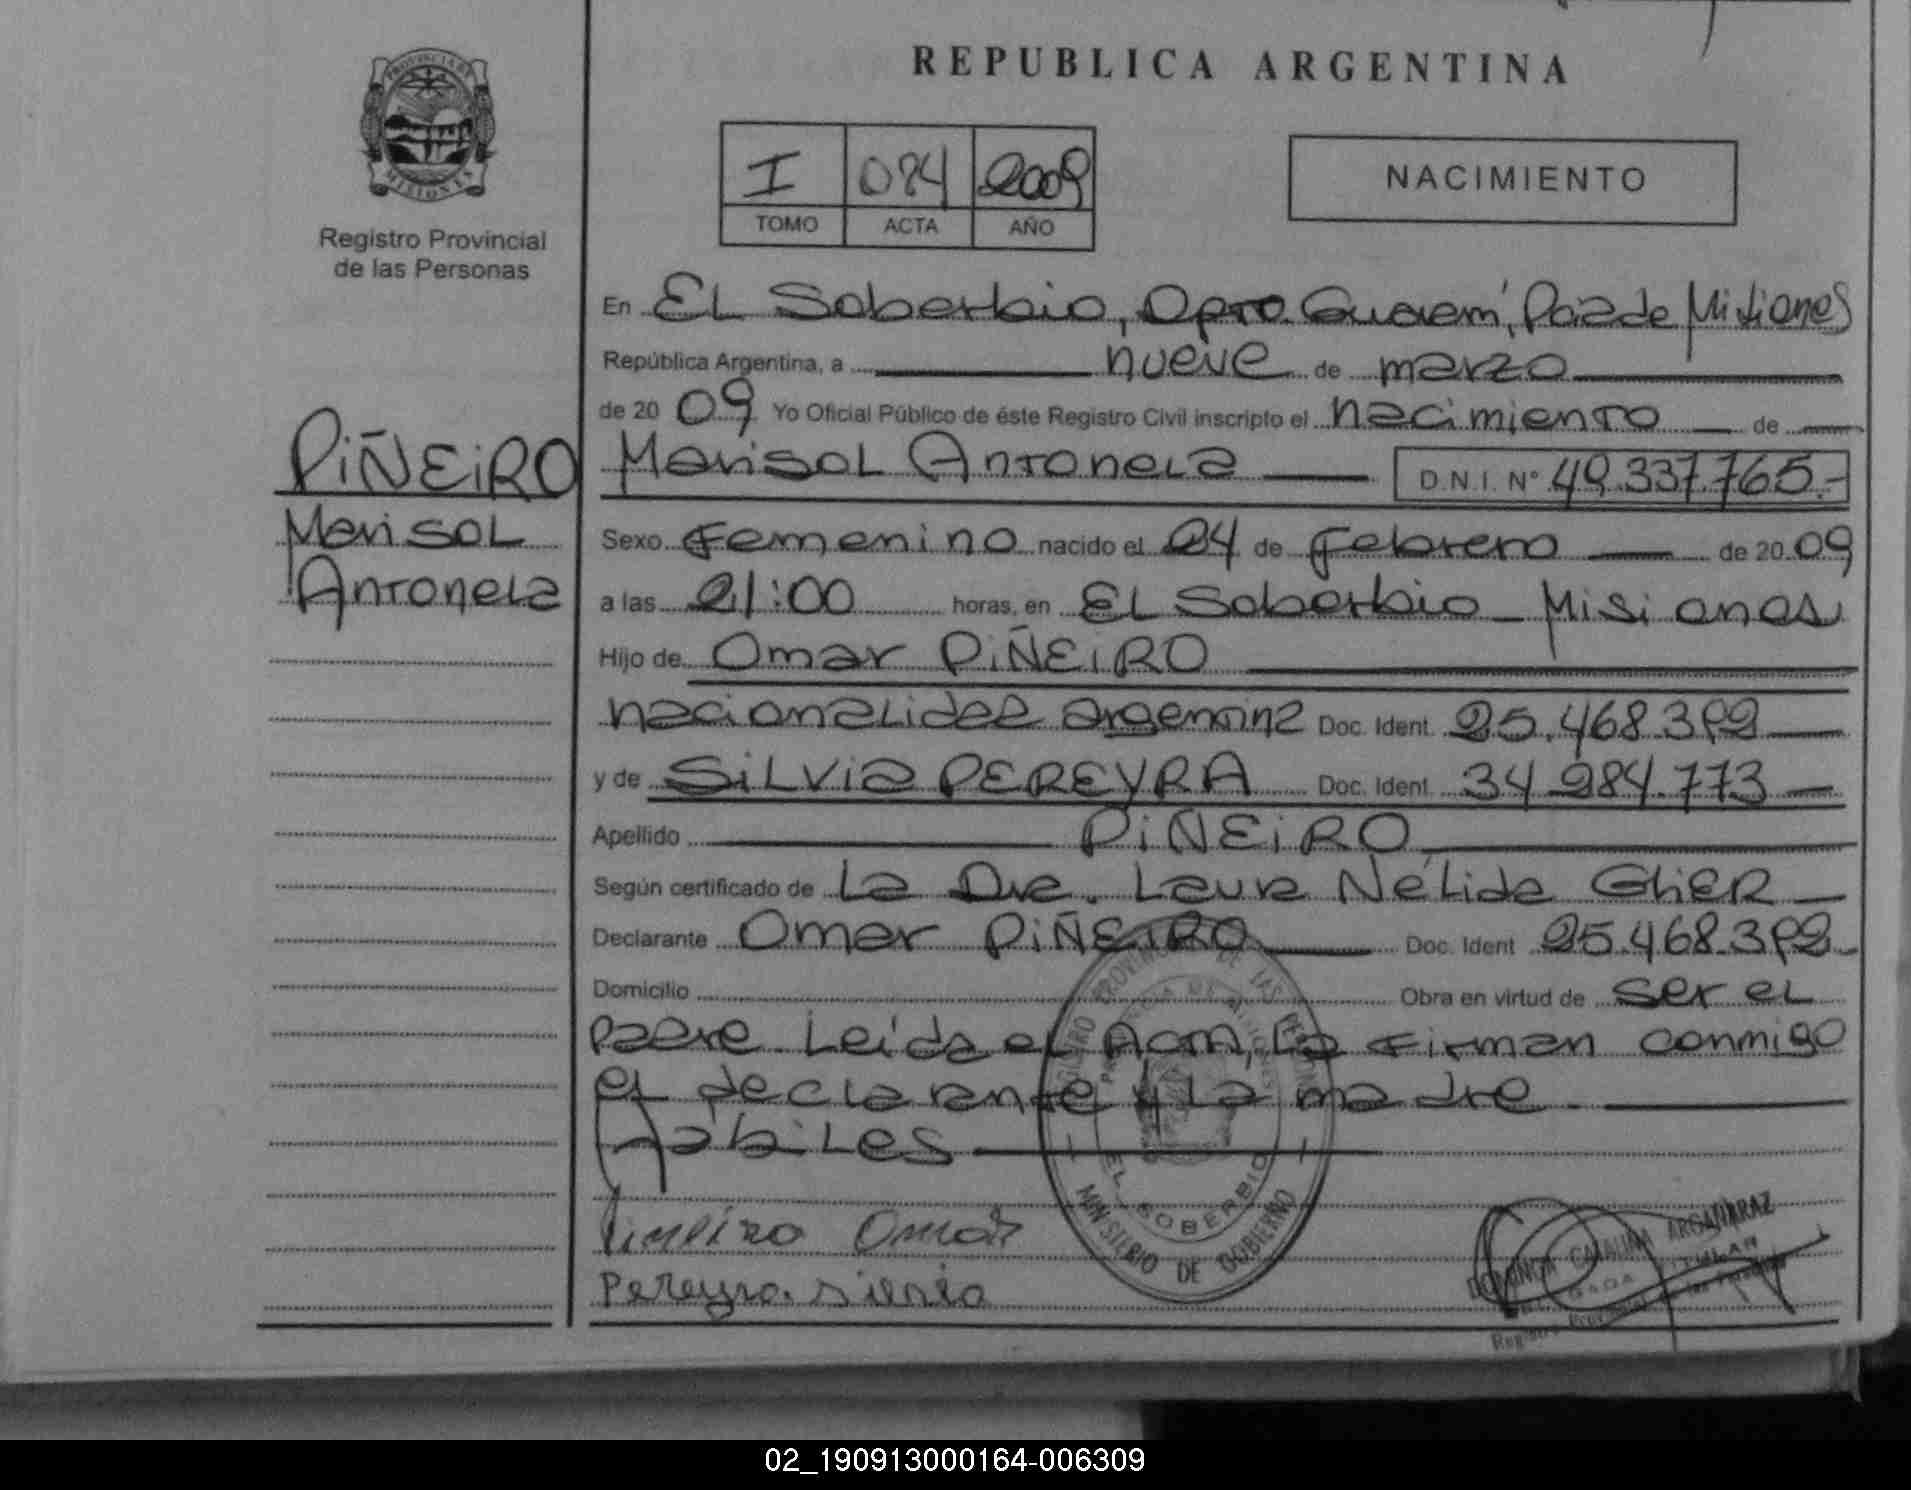 REPUBLICA ARGENTINA
PROVINCIA DE
MISIONES
Registro Provincial
de las Personas
I 084 2009
TOMO ACTA AÑO
NACIMIENTO
En EL Soberbio, Dpto. Guaraní, Pcia de Misiones
República Argentina, a nueve de marzo
de 20 09 Yo Oficial Público de éste Registro Civil inscripto el nacimiento de
PIÑEIRO
Marisol
Antonela
Marisol Antonela D.N.I. N° 49.337.765.-
Sexo Femenino nacido el 24 de Febrero de 20 09
a las 21:00 horas, en EL Soberbio - Misiones
Hijo de Omar PIÑEIRO
nacionalidad argentina Doc. Ident. 25.468.392
y de Silvia PEREYRA Doc. Ident. 34.284.773
Apellido PIÑEIRO
Según certificado de La Dra. Laura Nélida
Declarante Omar PIÑEIRO Doc. Ident 25.468.392
Domicilio Obra en virtud de ser el
padre Leída el Acta, La Firman conmigo
el declarante y la madre
hábiles
Piñeiro Omar
Pereyra Silvia
REGISTRO PROVINCIAL DE LAS PERSONAS
PROVINCIA DE MISIONES
EL SOBERBIO
MINISTERIO DE GOBIERNO
CATALINA
TITULAR
02_190913000164-006309